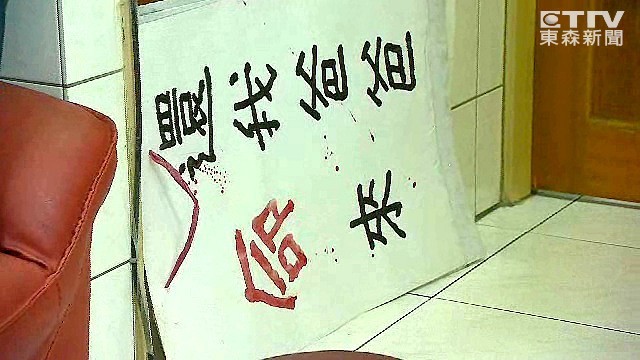 ETTV
東森新聞
還我爸爸
命來